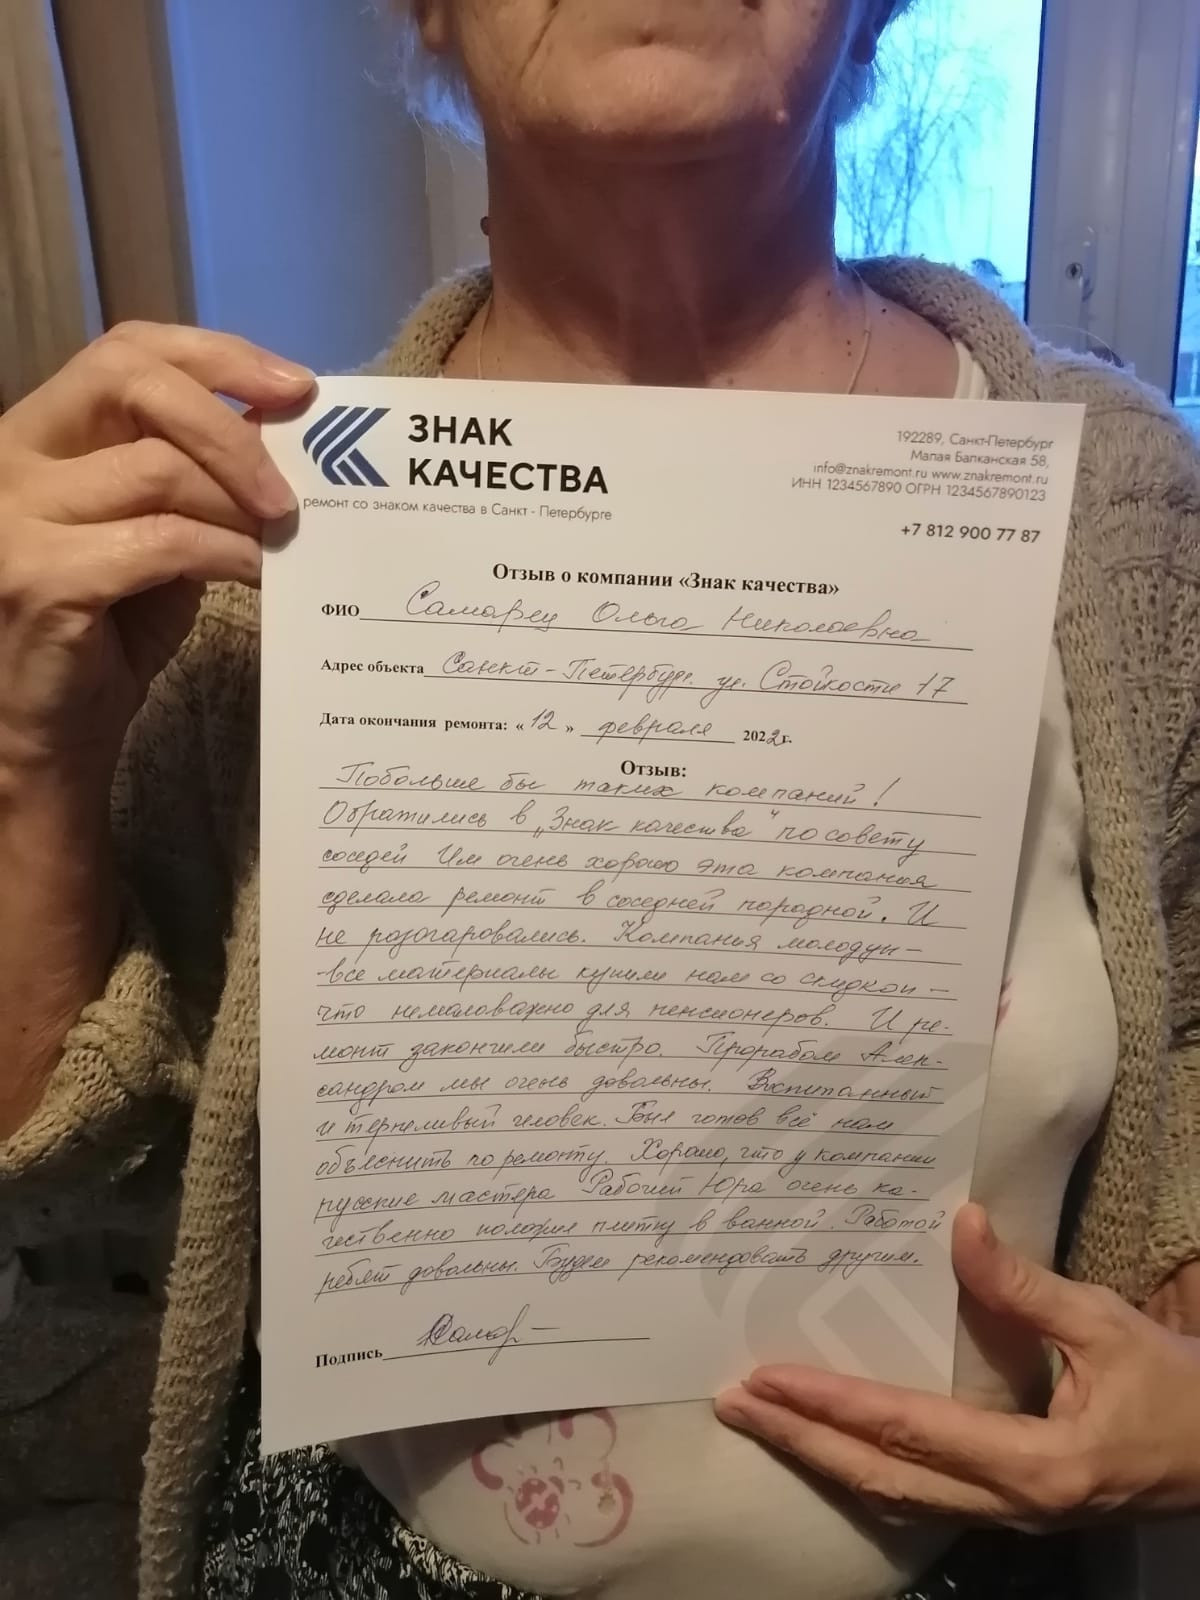 ЗНАК
КАЧЕСТВА
ремонт со знаком качества в Санкт - Петербурге
192289, Санкт-Петербург
Малая Балканская 58,
info@znakremont.ru www.znakremont.ru
ИНН 1234567890 ОГРН 1234567890123
+7 812 900 77 87
Отзыв о компании «Знак качества»
ФИО Самарец Ольга Николаевна
Адрес объекта Санкт-Петербург. ул. Стойкости 17
Дата окончания ремонта: «12» февраля 2022г.
Отзыв:
Побольше бы таких компаний!
Обратились в „Знак качества" по совету
соседей Им очень хорошо эта компания
сделала ремонт в соседней парадной. И
не разочаровались. Компания молодцы –
-все материалы купили нам со скидкой –
что немаловажно для пенсионеров. И ре-
монт закончили быстро. Прорабом Алек-
сандром мы очень довольны. Воспитанный
и терпеливый человек. Был готов всё нам
объяснить по ремонту. Хорошо, что у компании
русские мастера Рабочий Юра очень ка-
чественно положил плитку в ванной. Работой
ребят довольны. Будем рекомендовать другим.
Подпись Самар